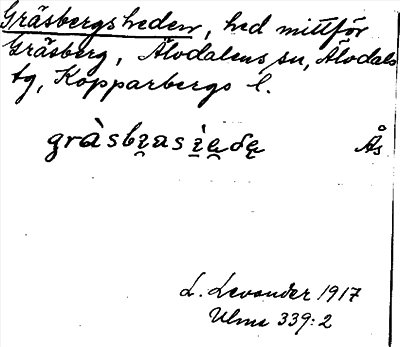 Gråsbergsheden, hed mittför
Gråsberg, Älvdalens sn, Älvdals
tg, Kopparbergs l.
gràsbɪ̯as ɪ̯̀e̯δę Ås
L. Levander 1917
Ulma 339:2